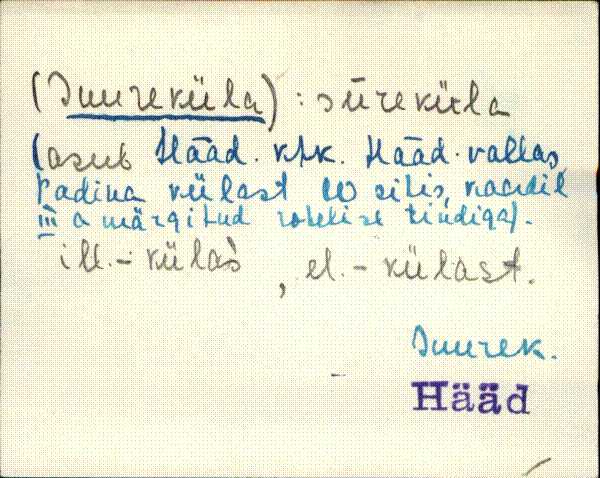 (Suureküla) : sūreküla
(asub Hääd. khk. Hääd. vallas,
Kadina külast W silis, kaardil
III a märgitud rohelise tindiga).
ill. - külàs , el. - külast.
Suurek.
Hääd